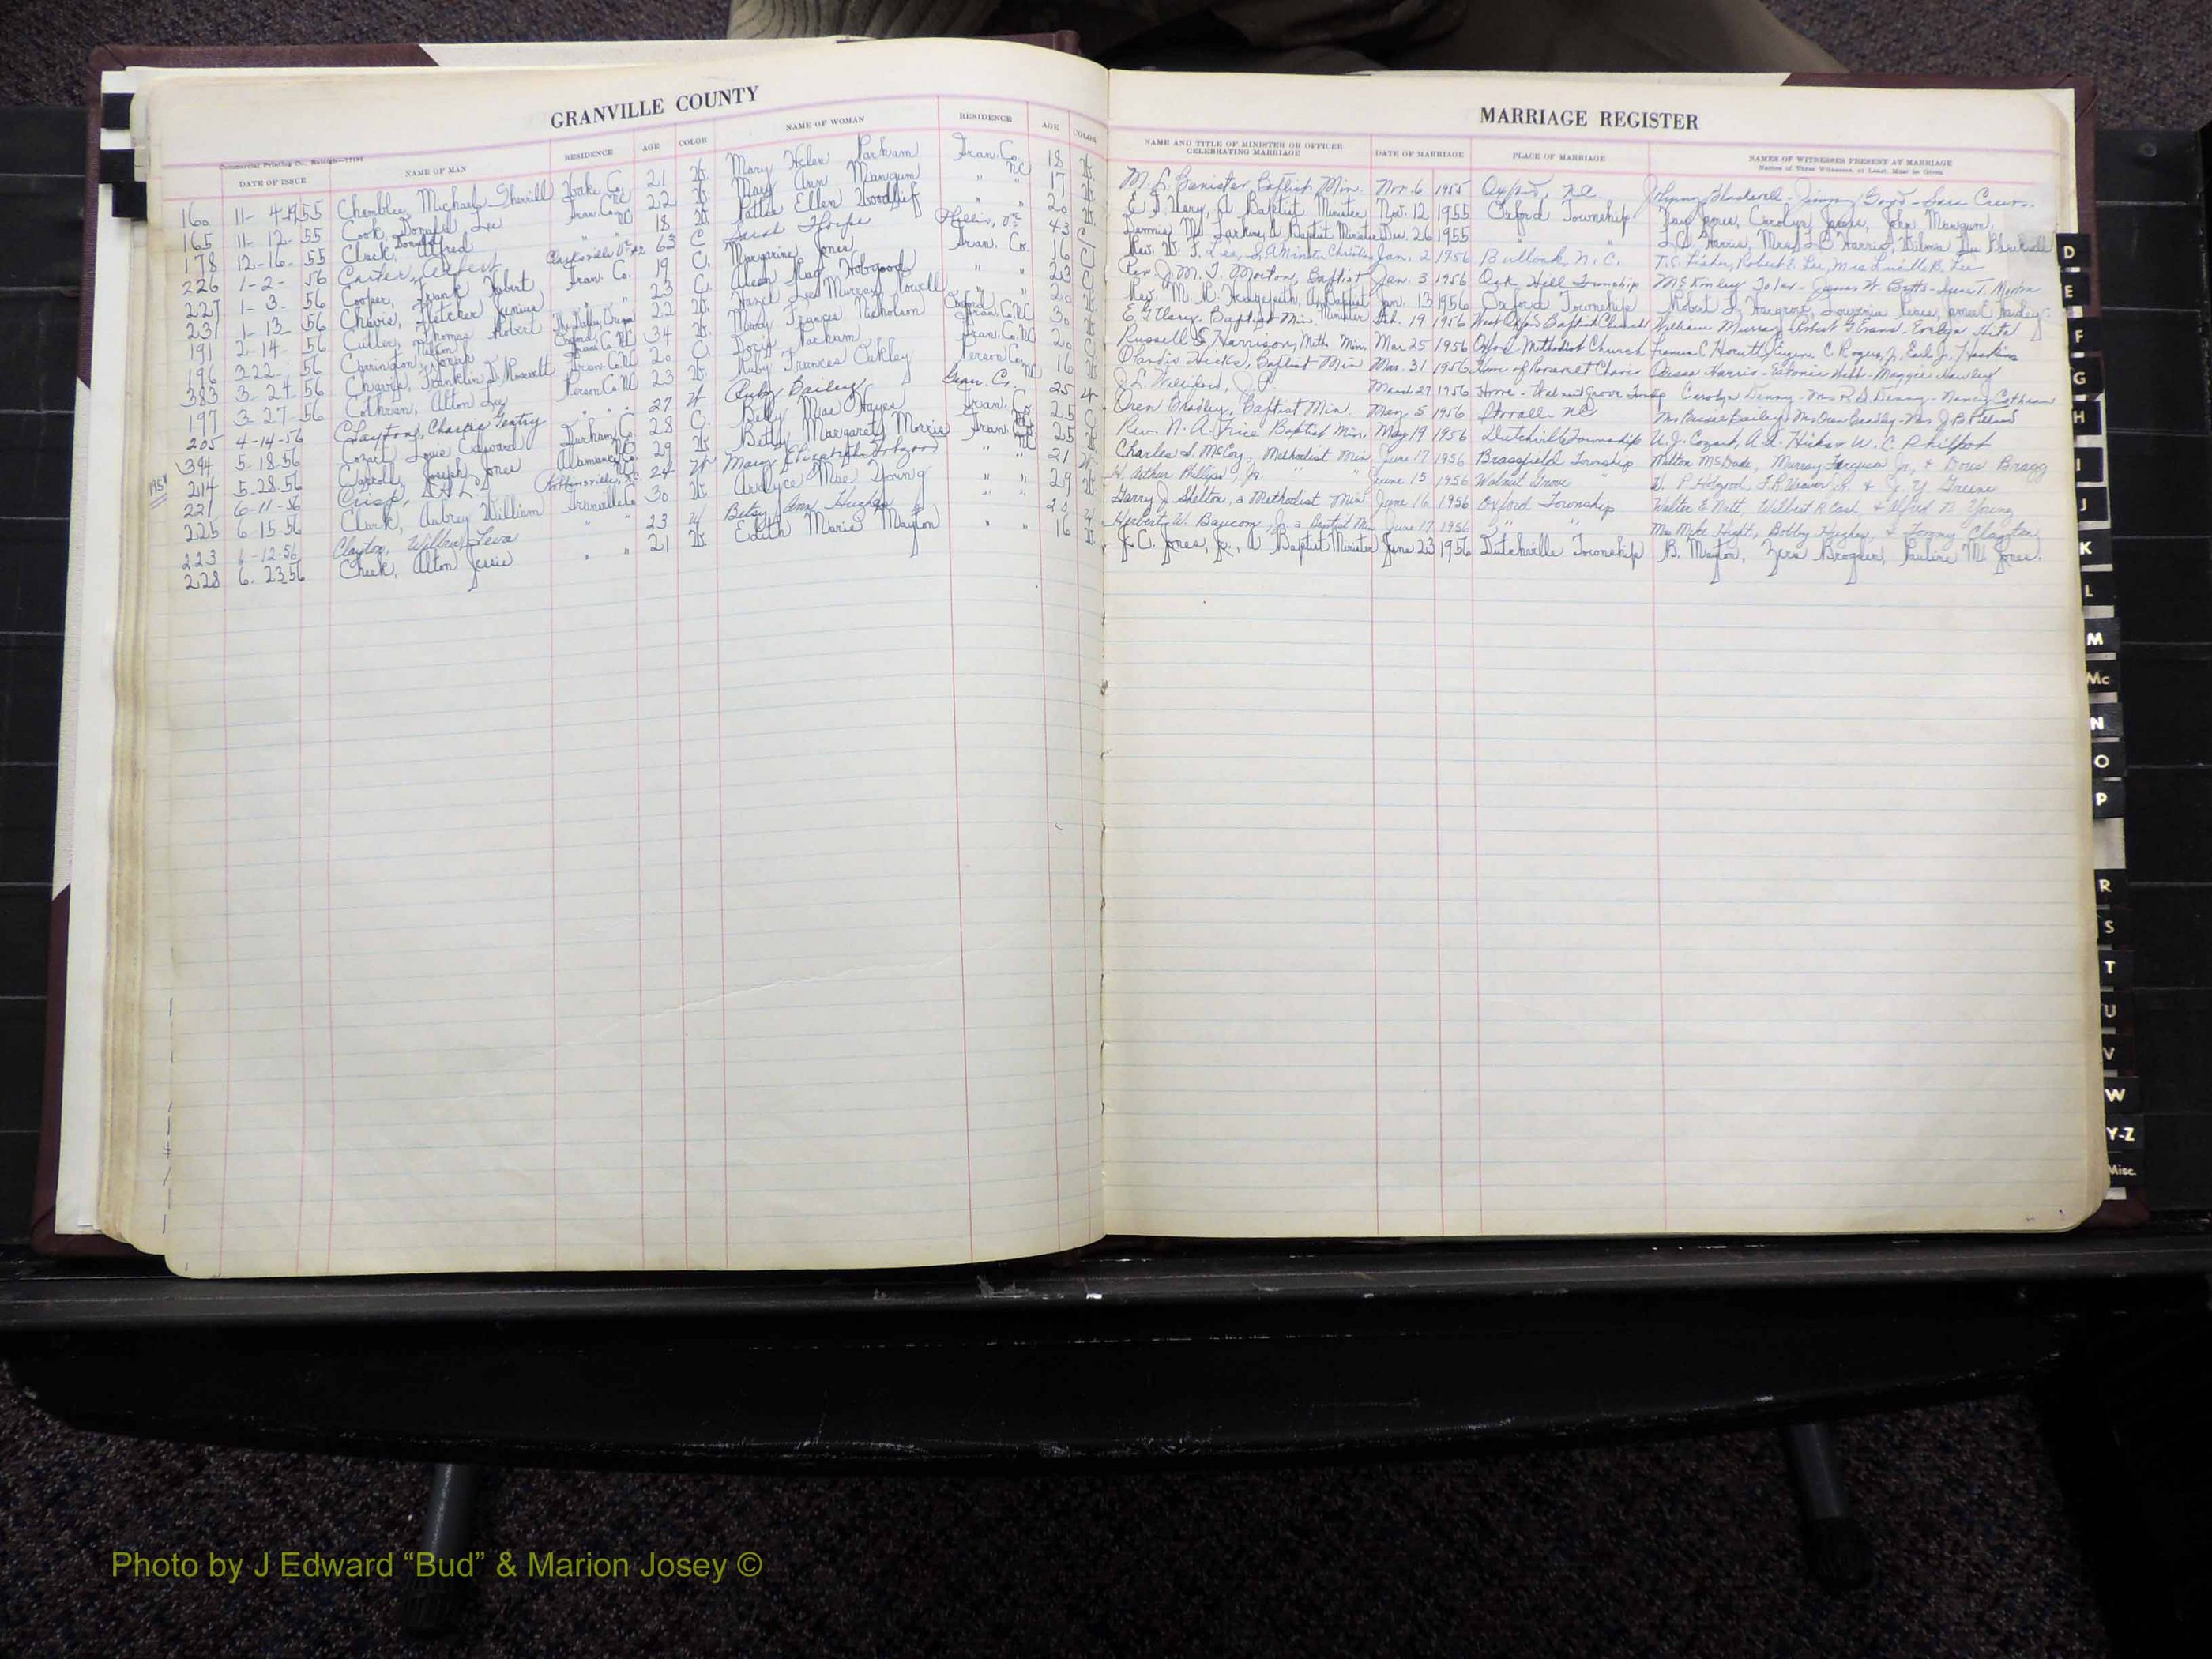 GRANVILLE COUNTY
Commercial Printing Co., Raleigh
DATE OF ISSUE NAME OF MAN RESIDENCE AGE COLOR NAME OF WOMAN RESIDENCE AGE COLOR
160 11-4-1955 Chamblee, Michael Sherrill Wake Co. 21 W. Mary Helen Parham Gran. Co. NC 18 W.
165 11-12-55 Cook, Donald Lee Gran. Co. NC 22 W. Mary Ann Mangum " " 17 W.
178 12-16-55 Clark, Donald Alfred " " 18 W. Pattie Ellen Woodlief " " 20 W.
226 1-2-56 Carter, Clarksville Va. 63 C Sarah Thorpe 43 C
227 1-3-56 Cooper, Frank Hubert Gran. Co. 19 C. Margarine Jones Gran. Co. 16 C
231 1-13-56 Chavis, Fletcher Junius " " 23 C. Mae Hobgood " " 23 C
191 2-14-56 Cutler, Thomas Robert 22 W. Hazel Lee Murray Nowell Oxford 20 W.
196 3-22-56 34 W. Mary Frances Nicholson Gran. Co. NC 30 W.
383 3-24-56 Chavis, Franklin D. Roosevelt Gran. Co. NC 20 C. Doris Parham Gran. Co. NC 20 C
197 3-27-56 Cothran, Alton Lee Person Co. NC 23 W. Ruby Frances Oakley Person Co. NC 16 W.
205 4-14-56 Clayton, Charlie Gentry " " 27 W Ruby Bailey Gran. Co. 25 W
394 5-18-56 Cozart, Louie Edward Durham Co. 28 C. Betty Mae Hayes Gran. Co. 25 C
214 5-28-56 Carroll, Joseph Jones Alamance Co. 29 W. Betty Margaret Morris Gran. Co. NC 25 W.
221 6-11-56 Crisp, Robbinsville, N.C. 24 W Mary Elizabeth " " 21 W
225 6-15-56 Clark, Aubrey William Granville Co 30 W. Ardyce Mae Young " " 29 W
223 6-12-56 Clayton, Wilbur Leva " " 23 W Betsy Ann Hughes 20 W
228 6-23-56 Cheek, Alton Jessie " " 21 W. Edith Marie Mayton " " 16 W.
MARRIAGE REGISTER
NAME AND TITLE OF MINISTER OR OFFICER CELEBRATING MARRIAGE DATE OF MARRIAGE PLACE OF MARRIAGE NAMES OF WITNESSES PRESENT AT MARRIAGE
Names of Three Witnesses, at Least, Must be Given
M. L. Banister, Baptist Min. Nov. 6 1955 Oxford, NC Johnny Blackwell - Jimmy Boyd - Sara Crews.
A Baptist Minister Nov. 12 1955 Oxford Township Fay Jones, Carolyn Jones, John Mangum,
Dennis M. Larkins, a Baptist Minister Dec. 26 1955 " " L.B. Harris, Mrs. L.B. Harris, Wilma Lee Blackwell
Rev. W. F. Lee, Christian Jan. 2 1956 Bullock, N.C. T.C. Fisher, Robert E. Lee, Mrs Lucille B. Lee
Rev J. M. T. Morton, Baptist Jan. 3 1956 Oak Hill Township McKinley Toler - James W. Betts - June T. Morton
Rev. M. R. Hedgepeth, A Baptist Minister Jan. 13 1956 Oxford Township Robert L. Hargrove, Louvenia
Baptist Min. Feb. 19 1956 West Oxford Baptist Church William Murray, Robert G. Evans. Evelyn Hite
Russell S. Harrison, Meth. Min. Mar 25 1956 Oxford Methodist Church Francis C Eugene C. Rogers, Jr. Earl J. Hoskins
Otandis Hicks, Baptist Min Mar. 31 1956 Home of Roosevelt Chavis Harris - Estonia Webb - Maggie Hawley
J. L. Williford, J.P. March 27 1956 Home - Walnut Grove Twsp Carolyn Denny - Mrs R.D. Denny - Nancy Cothran
Oren Bradley, Baptist Min. May 5 1956 Stovall - NC Mrs Bessie Bailey, Mrs Oren Bradley - Mrs J.B. Pittard
Rev. N. A. Price Baptist Min. May 19 1956 Dutchville Township U. J. Cozart, A. A. Hicks & W. C. Philpot
Charles S. McCoy, Methodist Min June 17 1956 Brassfield Township Milton McDade, Murray Ferguson Jr., & Doris Bragg
H. Arthur Phillips, Jr. " " June 15 1956 Walnut Grove " W. P. Hobgood, F.R. Weaver Jr. & J. Y. Greene
Garry J. Shelton, a Methodist Min June 16 1956 Oxford Township Walter E. Nutt, Wilbert R. Cash, & Alfred N. Young
Herbert W. Baucom, Jr. a Baptist Min June 17 1956 " " Mrs Mike Hight, Bobby Hughes, & Tommy Clayton
J. C. Jones, Jr., a Baptist Minister June 23 1956 Dutchville Township B. Mayton, Zera Brogden, Pauline M. Jones.
D
E
F
G
H
I
J
K
L
M
Mc
N
O
P
R
S
T
U
V
W
Y-Z
Misc.
Photo by J Edward “Bud” & Marion Josey ©